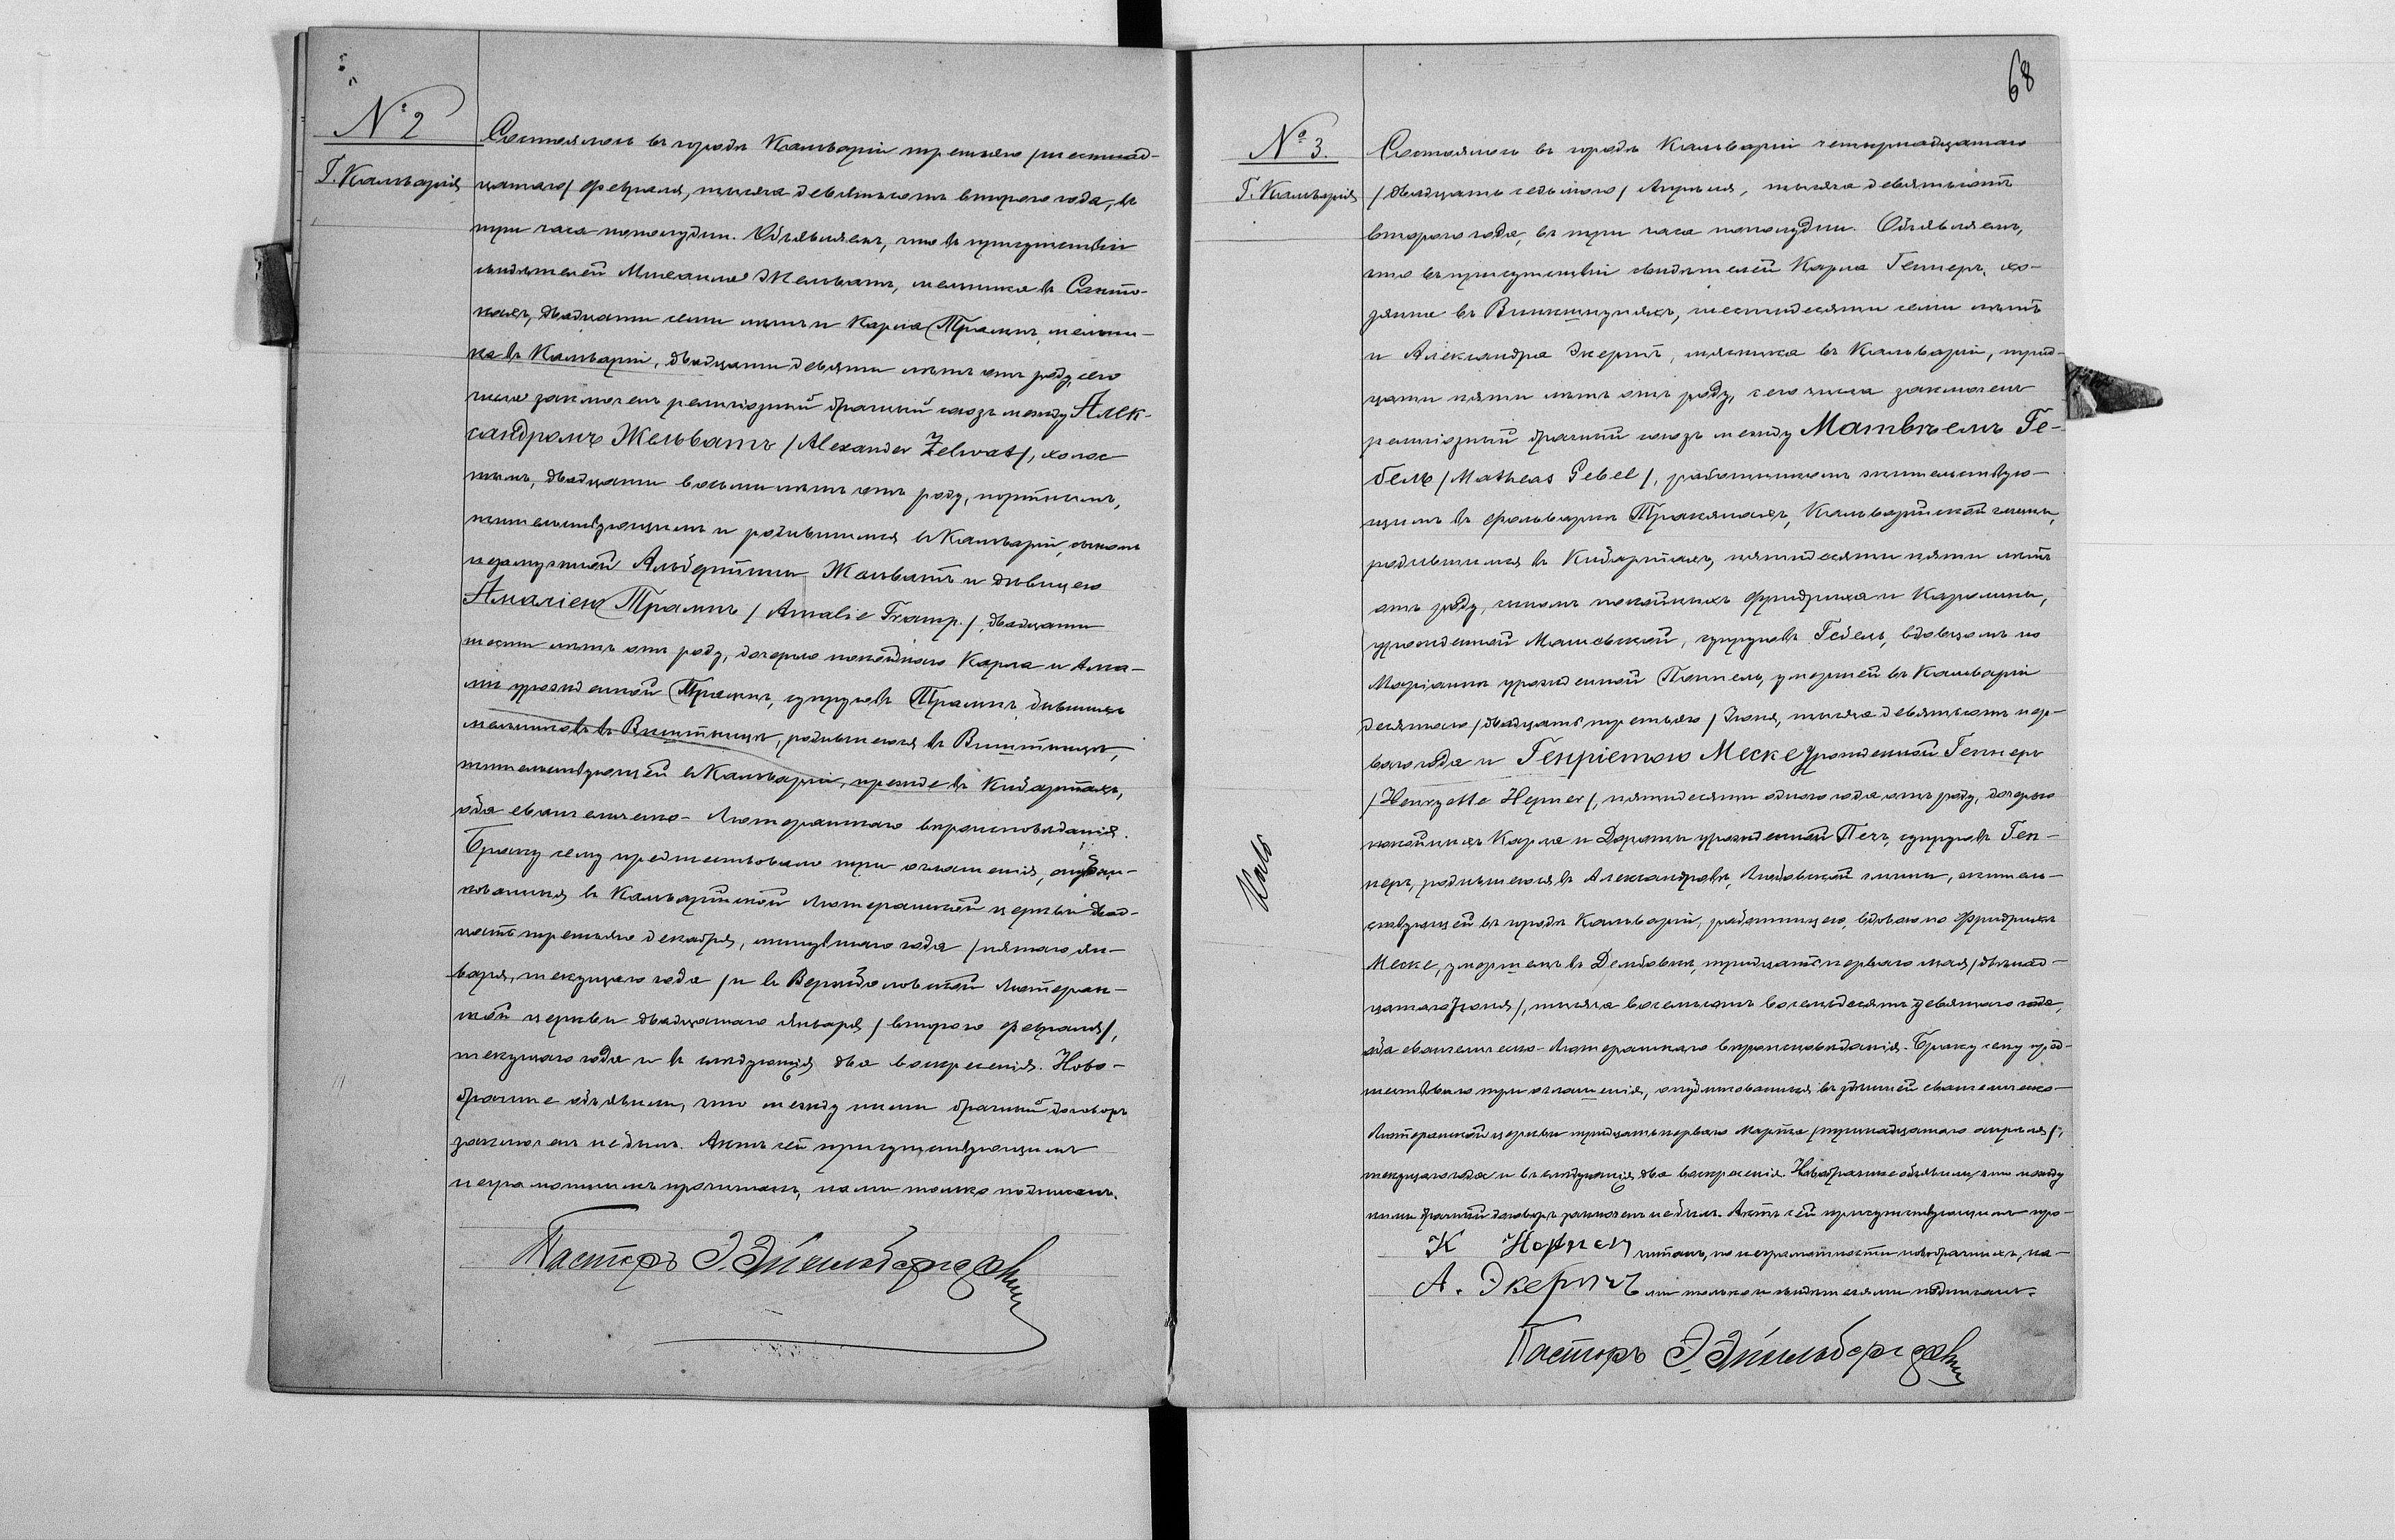 № 2
Г. Кальварія
Состоялось въ городѣ Кальваріи третьяго /шестнад-
цатаго/ Февраля, тысяча девятьсотъ второго года, въ
три часа пополудни. Объявляемъ, что въ присутствіи
свидѣтелей Михаила Жельватъ, мельника въ
двадцати семи лѣтъ и Карла Трампъ, мельни-
ка въ Кальваріи, двадцати девяти лѣтъ отъ роду, сего
числа заключенъ религіозный брачный союзъ между Алек-
сандромъ Жельватъ /Alexander Zelwat/, холос-
тымъ, двадцати восьми лѣтъ отъ роду, портнымъ,
жительствующимъ и родившимся въ Кальваріи, сыномъ
незамужней Альбертины Жельватъ и дѣвицею
Амаліею Трампъ /Amalie Tramp./, двадцати
шести лѣтъ отъ роду, дочерью покойнаго Карла и Ама-
ліи урожденной Трампъ, супруговъ Трампъ, бывшихъ
мельниковъ въ Виштынцѣ, родившеюся въ Виштынцѣ,
жительствующей въ Кальваріи, прежде въ Кибартахъ,
оба евангелическо-Лютеранскаго вѣроисповѣданія.
Браку сему предшествовало три оглашенія, опубли-
кованныя въ Кальварійской Лютеранской церкви двад-
цать третьяго декабря, минувшаго года /пятаго ян-
варя, текущаго года/ и въ Вержболовской Лютеран-
ской церкви двадцатаго Января /второго Февраля/,
текущаго года и въ слѣдующія два воскресенія. Ново-
брачные объявили, что между ними брачный договоръ
заключенъ не былъ. Актъ сей присутствующимъ
неграмотнымъ прочитанъ, нами только подписанъ.
Пасторъ
68
№ 3.
Г. Кальварія
Состоялось въ городѣ Кальваріи четырнадцатаго
/двадцать седьмого/ Апрѣля, тысяча девятьсотъ
второго года, въ три часа пополудни. Объявляемъ,
что въ присутствіи свидѣтелей Карла Геппнеръ, хо-
зяина въ шестидесяти семи лѣтъ
и Александра Экертъ, мясника въ Кальваріи, трид-
цати пяти лѣтъ отъ роду, сего числа заключенъ
религіозный брачный союзъ между Матвѣемъ Ге-
бель /Matheas Gebel/, работникомъ жительствую-
щимъ въ фольваркѣ Тракянахъ, Кальварійской гмины,
родившимся въ Кибартахъ, пятидесяти пяти лѣтъ
отъ роду, сыномъ покойныхъ Фридриха и Каролины,
урожденной супруговъ Гебель, вдовцомъ по
Маріаннѣ урожденной умершей въ Кальваріи
десятаго /двадцать третьяго/ Іюня, тысяча девятьсотъ пер-
ваго года и Генріетою Меске урожденной Геппнеръ
/Henryette Hepner/, пятидесяти одного года отъ роду, дочерью
покойныхъ Карла и Доротеи урожденной супруговъ Геп-
неръ, родившеюся въ Александровѣ, гмины, житель-
ствующей въ городѣ Кальваріи, работницею, вдовою по Фридрихѣ
Меске, умершемъ въ Дембовѣ, тридцать перваго мая /двѣнад-
цатаго Іюня/, тысяча восемьсотъ восемьдесятъ девятаго года,
оба евангелическо-Лютеранскаго вѣроисповѣданія. Браку сему пред-
шествовало три оглашенія, опубликованныя въ здѣшней евангелическо-
Лютеранской церкви тридцать перваго Марта /тринадцатаго апрѣля/,
текущаго года и въ слѣдующія два воскресенія. Новобрачные объявили, что между
ними брачный договоръ заключенъ не былъ. Актъ сей присутствующимъ про-
читанъ, по неграмотности новобрачныхъ, на-
ми только и свидѣтелями подписанъ.
К
А. Экертъ
Пасторъ